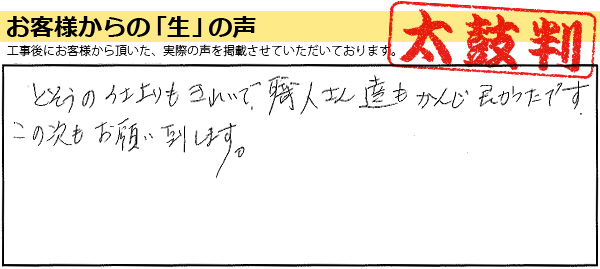 お客様からの「生」の声
工事後にお客様から頂いた、実際の声を掲載させていただいております。
太鼓判
とそうの仕上りもきれいで、職人さん達もかんじ良かったです。
この次もお願い致します。